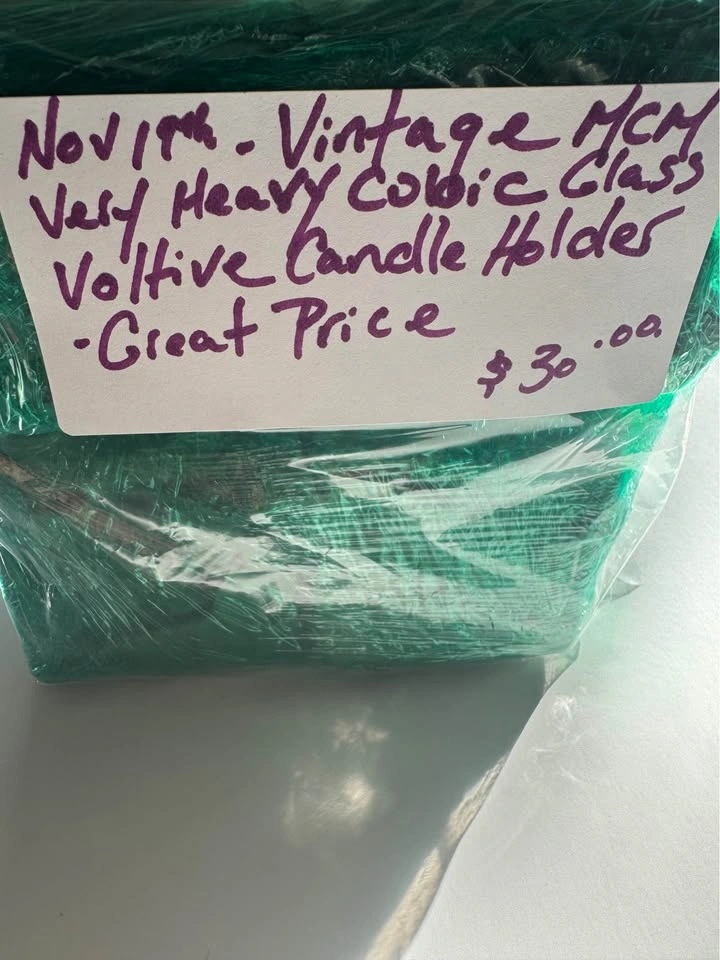 Nov 19th. Vintage MCM
Very Heavy Cubic Glass
Voltive Candle Holder
-Great Price
$30.00